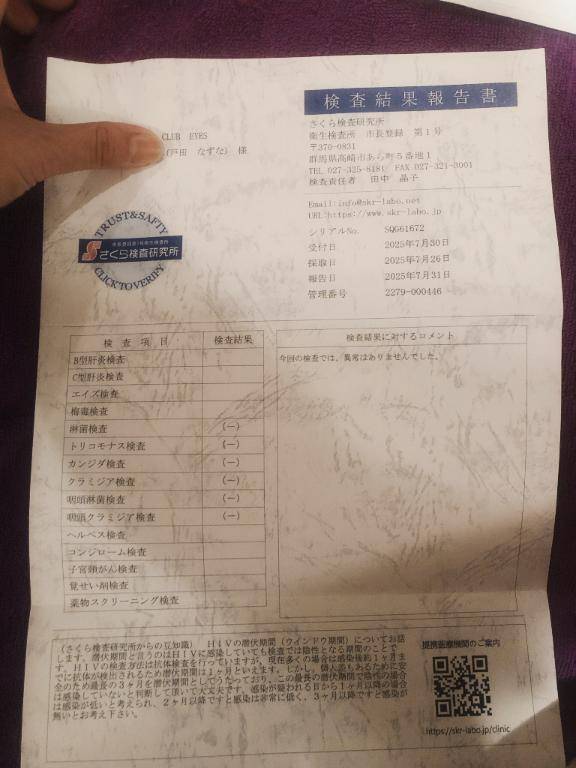 検査結果報告書
CLUB EYES
(戸田 なずな) 様
さくら検査研究所
衛生検査所 市長登録 第1号
〒370-0831
群馬県高崎市あら町5番地1
TEL 027-325-8181 FAX 027-321-3001
検査責任者 田中 晶子
Email:info@skr-labo.net
URL:https://www.skr-labo.jp
シリアルNo. SQG61672
受付日 2025年7月30日
採取日 2025年7月26日
報告日 2025年7月31日
管理番号 2279-000446
TRUST&SAFTY
さくら検査研究所
CLICK TO VERIFY
検査項目 検査結果
B型肝炎検査
C型肝炎検査
エイズ検査
梅毒検査
淋菌検査 (−)
トリコモナス検査 (−)
カンジダ検査 (−)
クラミジア検査 (−)
咽頭淋菌検査 (−)
咽頭クラミジア検査 (−)
ヘルペス検査
コンジローム検査
子宮頸がん検査
覚せい剤検査
薬物スクリーニング検査
検査結果に対するコメント
今回の検査では、異常はありませんでした。
(さくら検査研究所からの豆知識) HIVの潜伏期間(ウインドウ期間)についてお話
します。潜伏期間と言うのはHIVに感染していても検査では陰性となる期間のことで
す。HIVの検査方法は抗体検査を行っていますが、現在多くの場合は感染後約1ヶ月ま
でに抗体が検出されるため潜伏期間は1ヶ月といえます。しかし、個人差もあるために安
全のため最長の3ヶ月を潜伏期間としてうたっており、この最長の潜伏期間で陰性の場合
は感染していないと判断して頂いて大丈夫です。感染が疑われる日から1ヶ月以降の場合
は感染が低いと考えられ、2ヶ月以降ですと感染は非常に低く、3ヶ月以降ですと感染が
無いとお考え下さい。
提携医療機関のご案内
https://skr-labo.jp/clinic